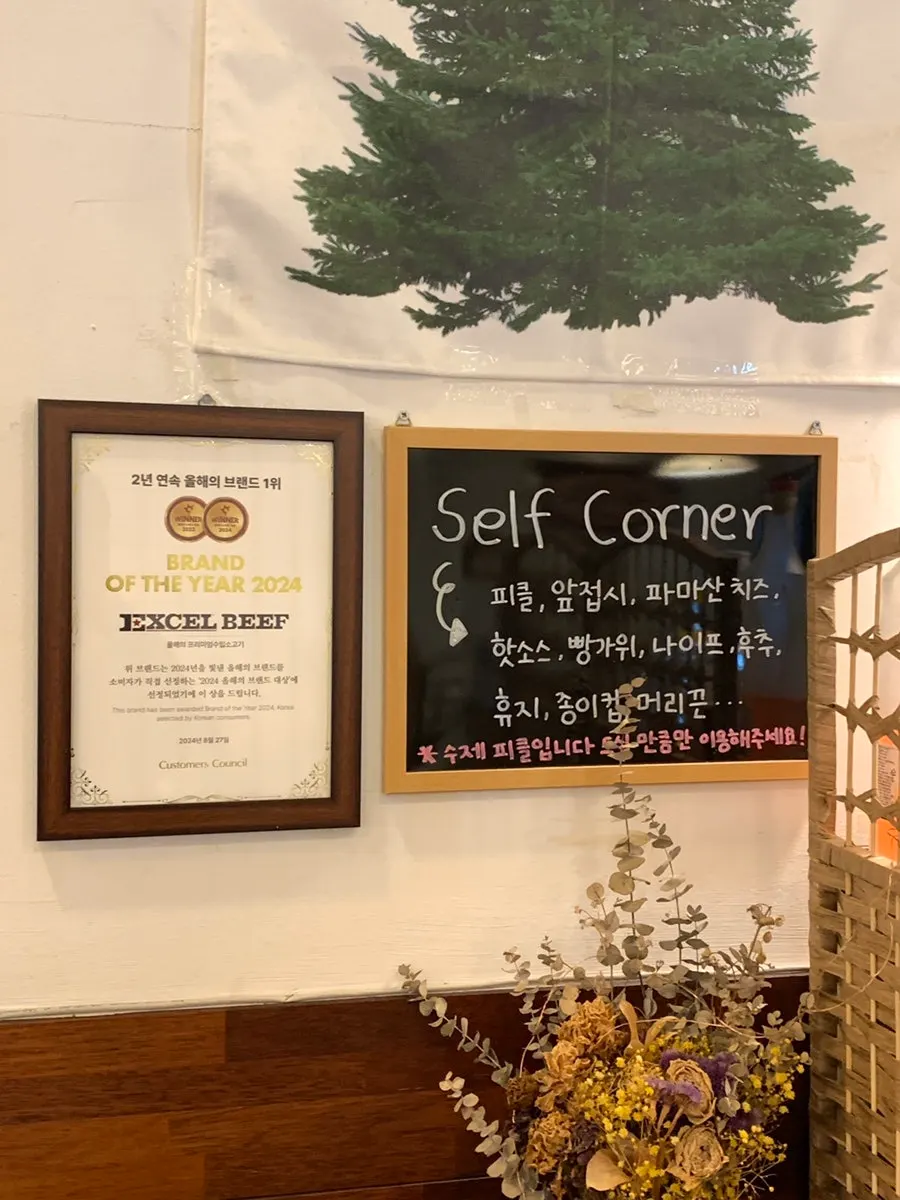 2년 연속 올해의 브랜드 1위
WINNER 2023
WINNER 2024
BRAND
OF THE YEAR 2024
EXCEL BEEF
올해의 프리미엄수입소고기
위 브랜드는 2024년을 빛낸 올해의 브랜드를
소비자가 직접 선정하는 '2024 올해의 브랜드 대상'에
선정되었기에 이 상을 드립니다.
This brand has been awarded Brand of the Year 2024, Korea
selected by Korean consumers.
2024년 8월 27일
Customers Council
Self Corner
피클, 앞접시, 파마산 치즈,
핫소스, 빵가위, 나이프, 후추,
휴지, 종이컵, 머리끈...
* 수제 피클입니다 만큼만 이용해주세요!